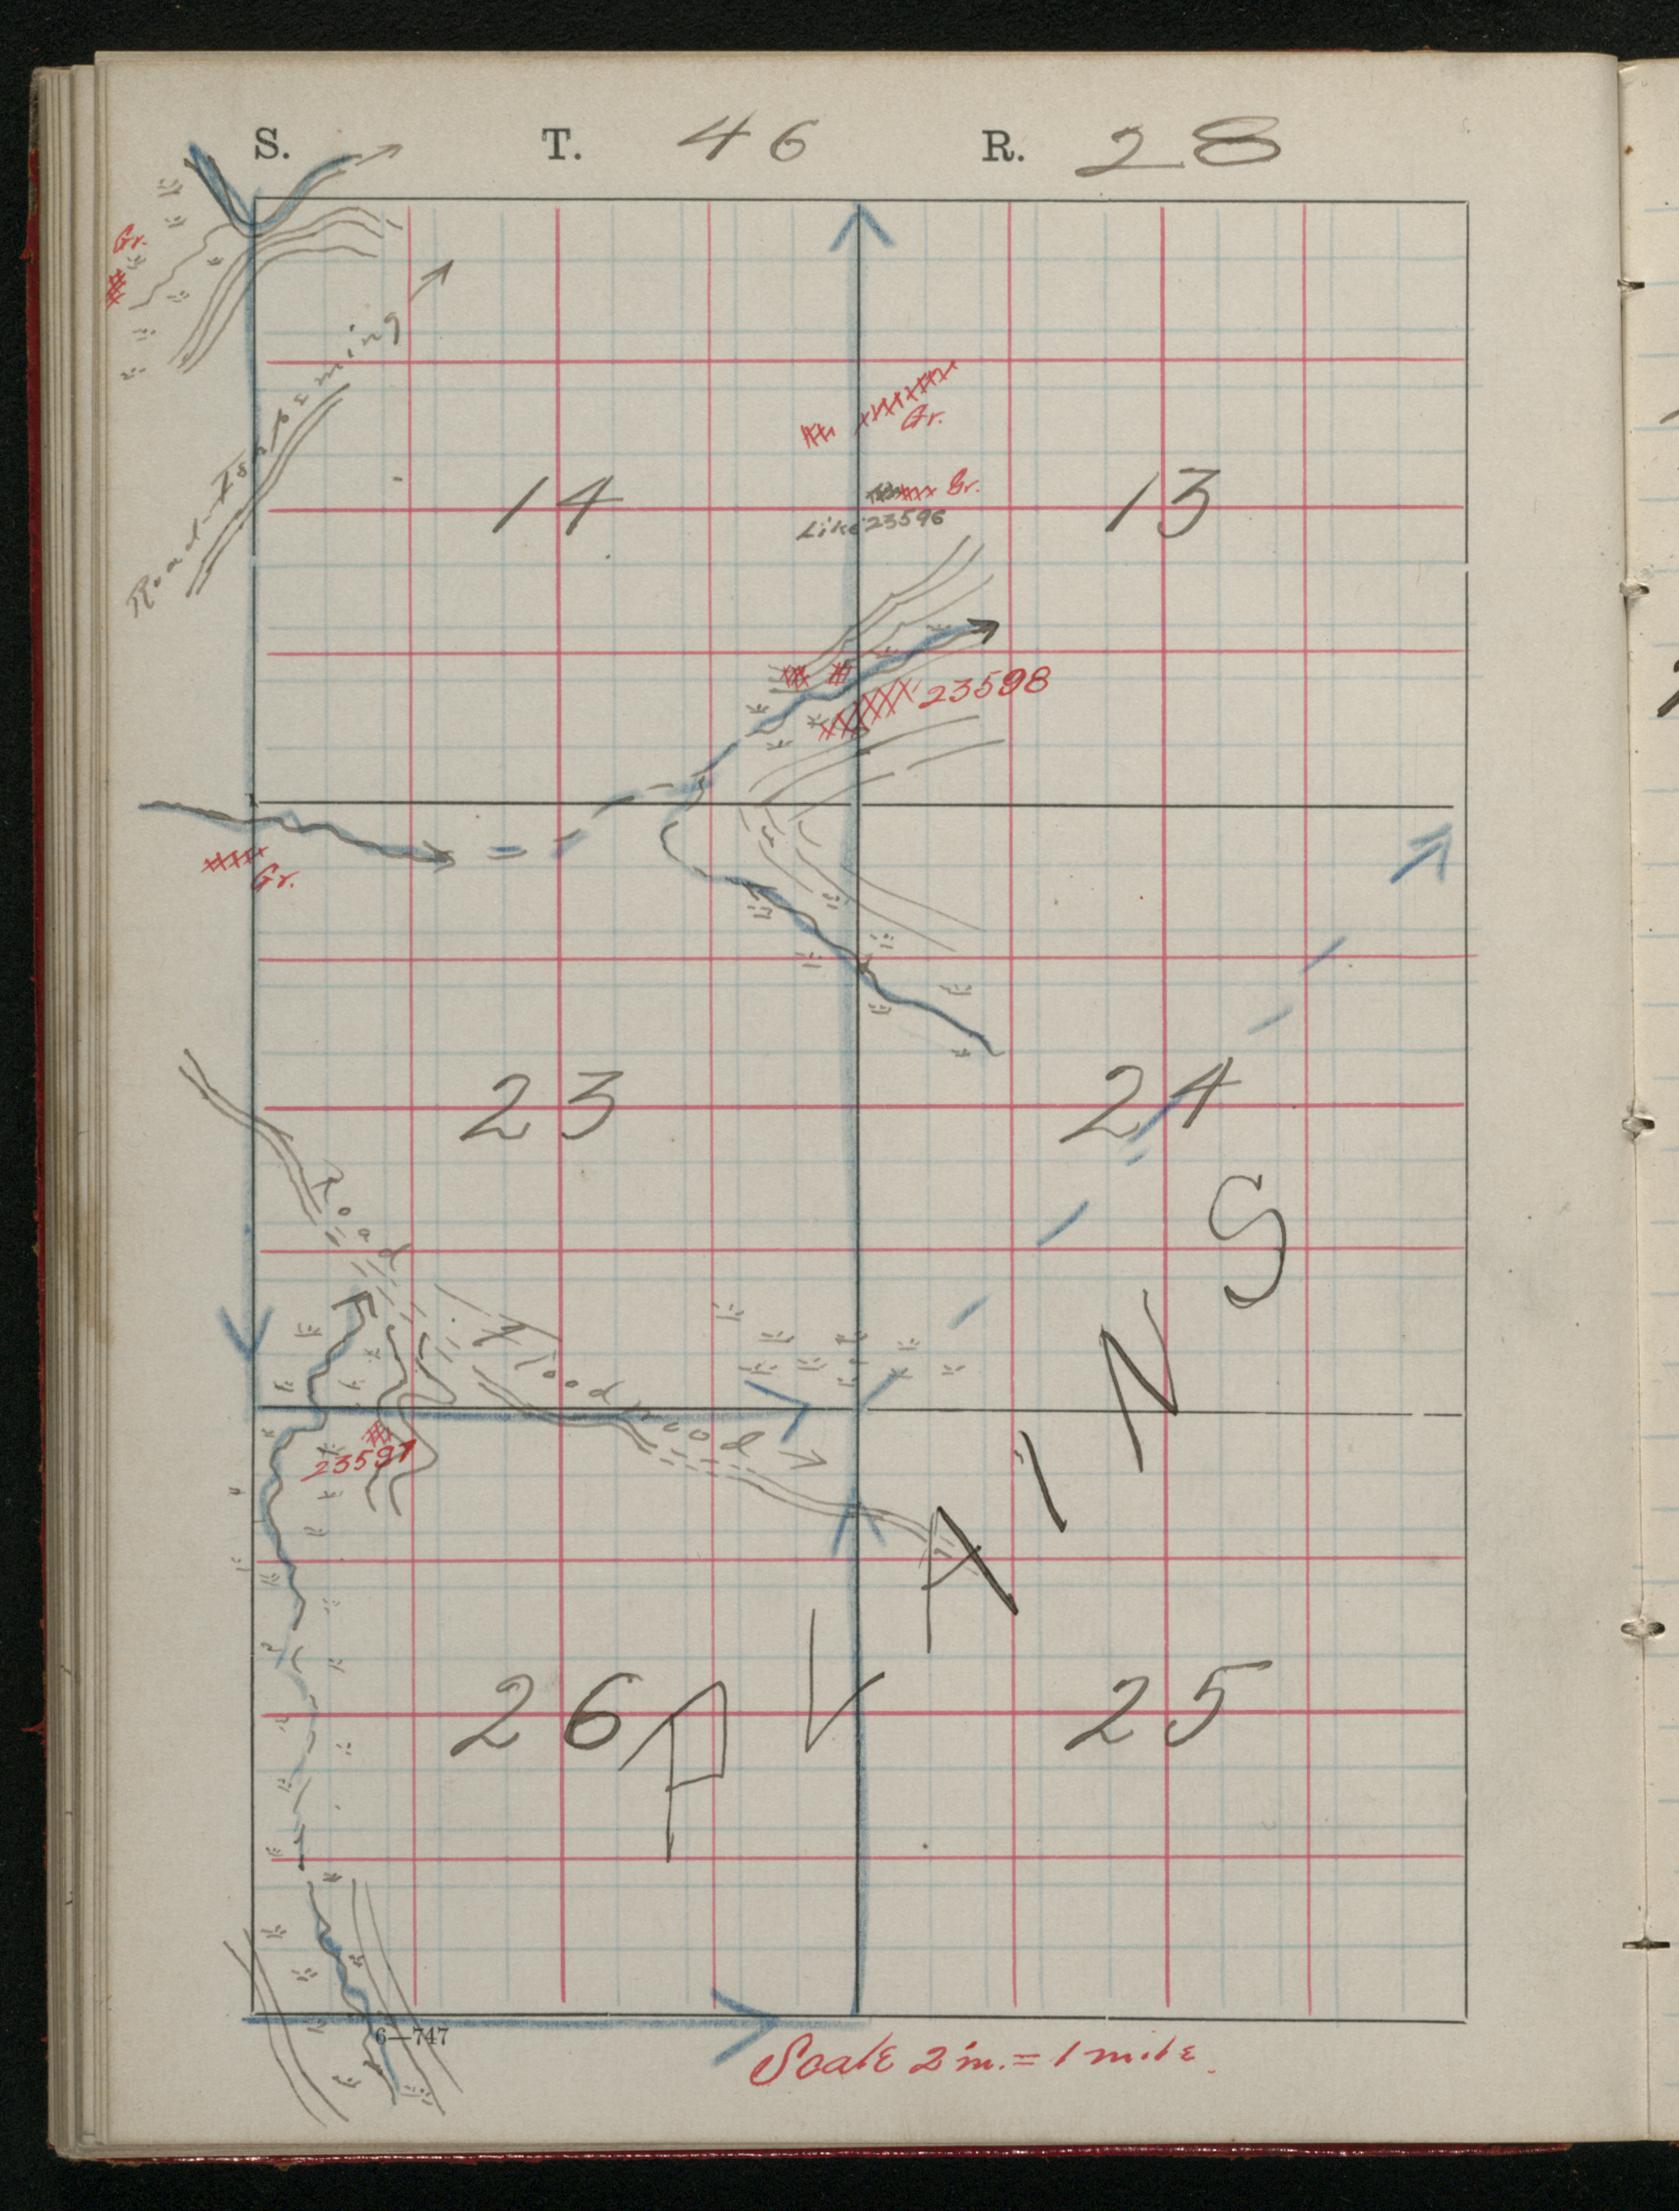 S. T. 46 R. 28
Gr.
Road-Ishpeming
Gr.
Gr.
Like 23596
14 13
23598
Gr.
23 24
Road
Flood wood
23597
PLAINS
26 25
6—747
Scale 2 in. = 1 mile.